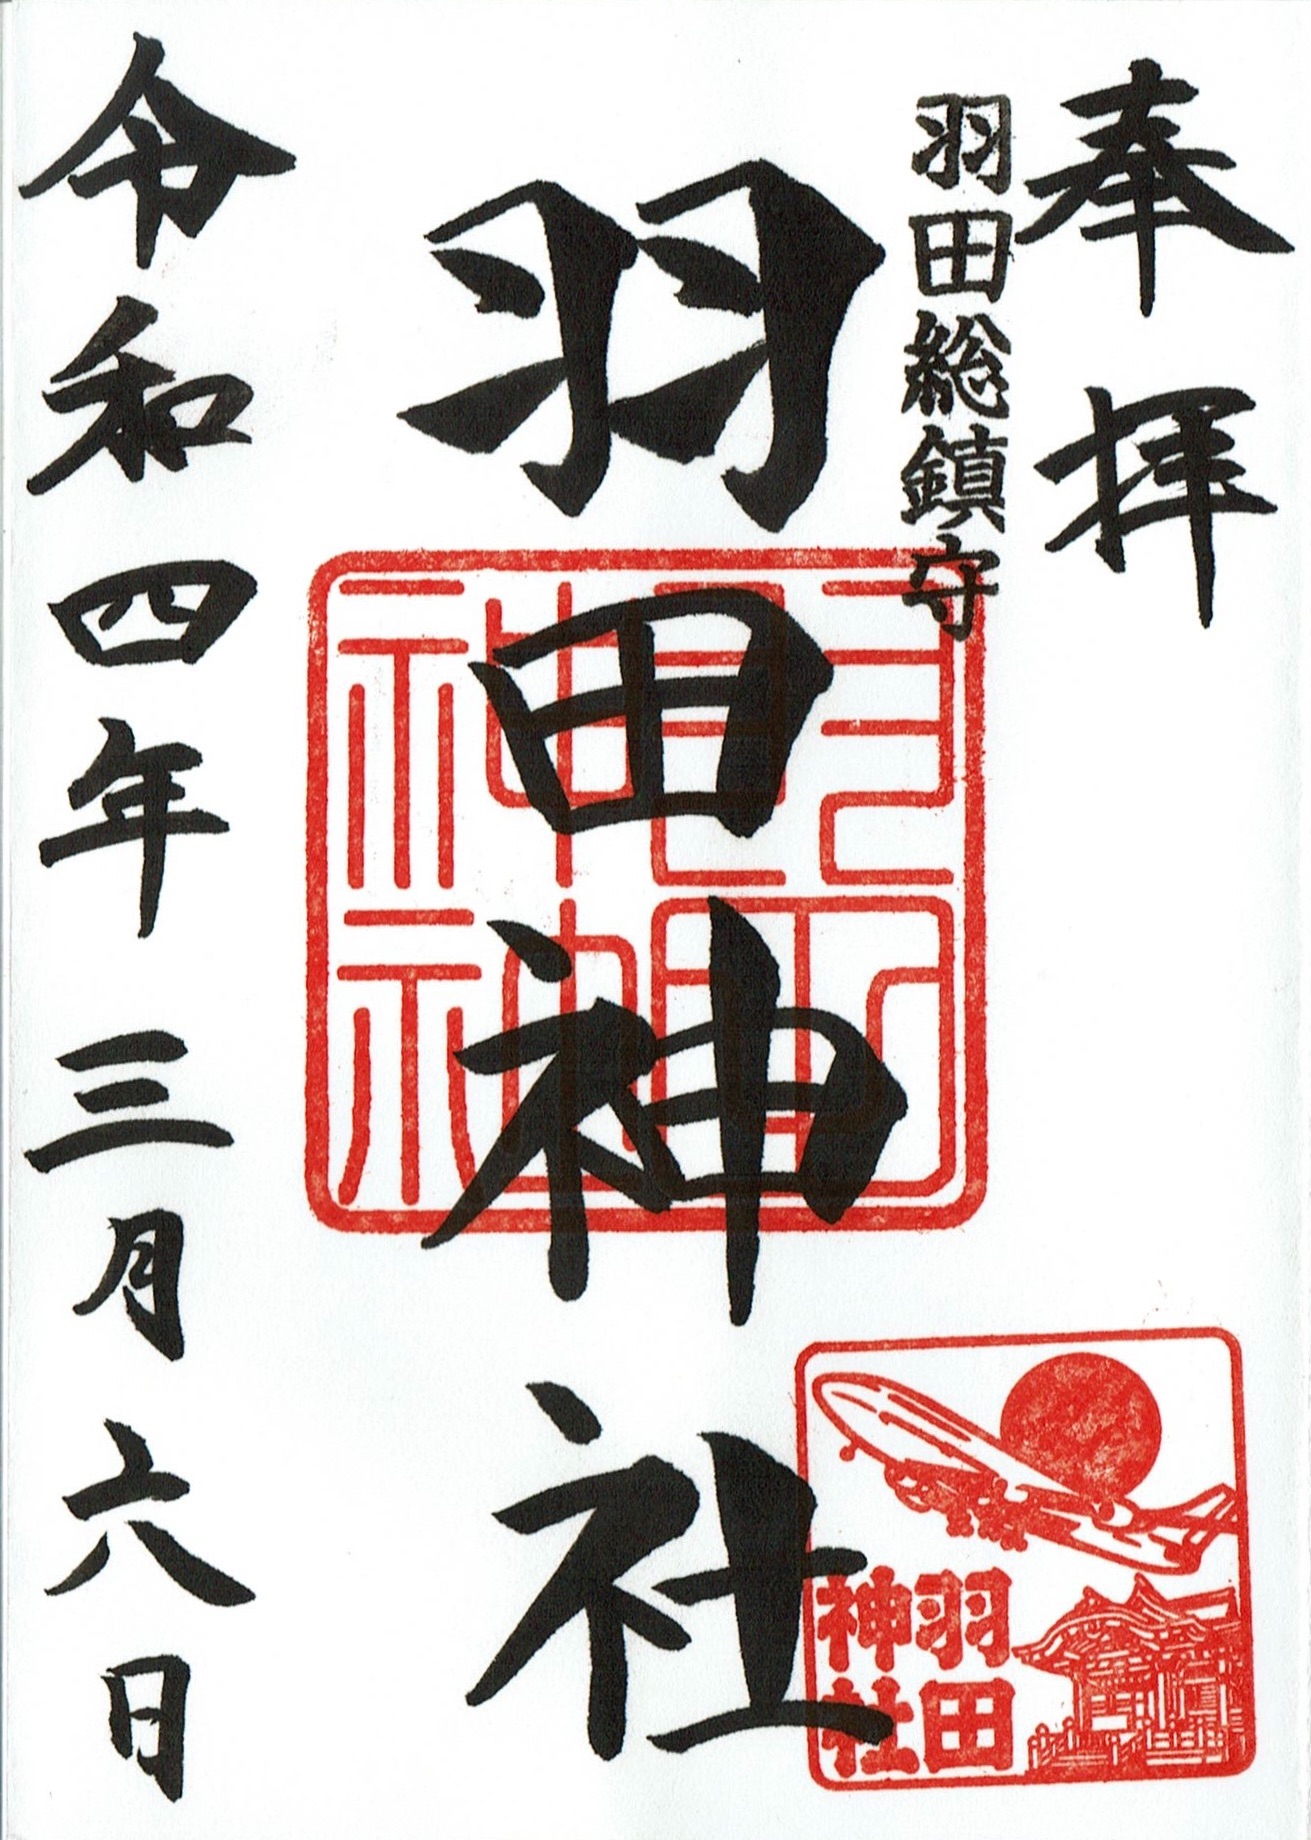 奉拝
羽田総鎮守
羽田神社
羽田神社
羽田
神社
令和四年三月六日